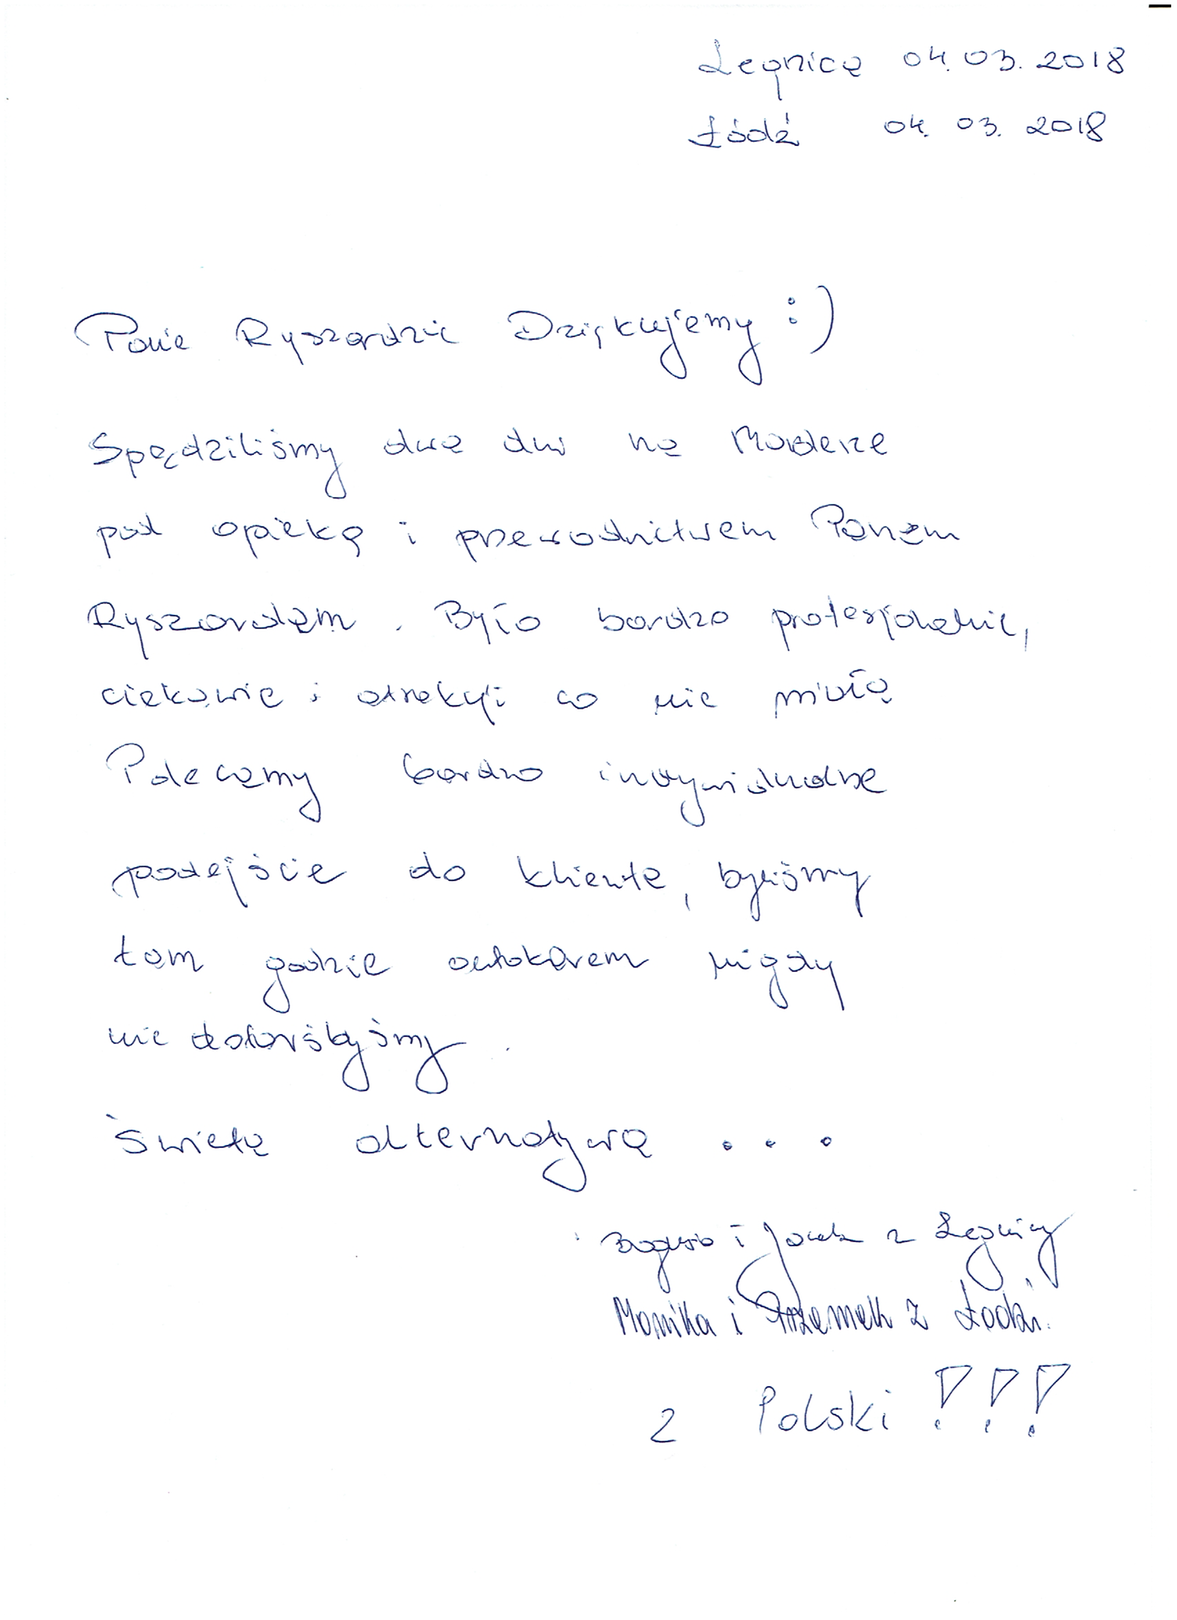 Legnica 04.03.2018
Łódź 04.03.2018
Panie Ryszardzie Dziękujemy :)
Spędziliśmy dwa dni na Maderze
pod opieką i przewodnictwem Panem
Ryszardem. Było bardzo profesjonalnie,
ciekawie i atrakcyji co nie miara
Polecamy bardzo indywidualne
podejście do klienta, byliśmy
tam gdzie autokarem nigdy
nie dotarlibyśmy.
Świetna alternatywa ...
Bogusia i Jacek z Legnicy
Monika i Przemek z Łodzi.
z Polski !!!